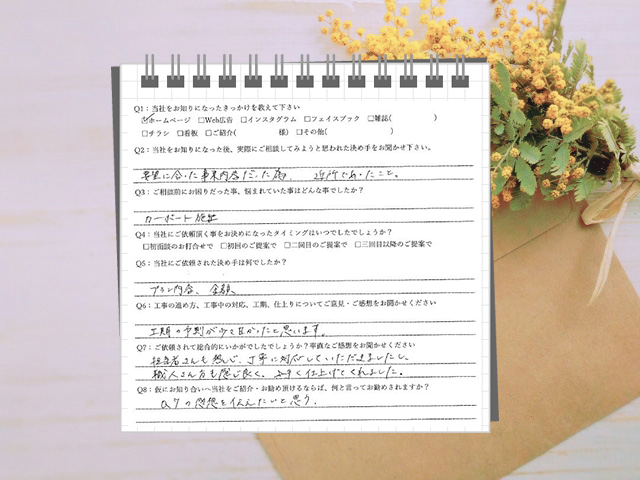 Q1：当社をお知りになったきっかけを教えて下さい
☑ホームページ □Web広告 □インスタグラム □フェイスブック □雑誌( )
□チラシ □看板 □ご紹介( 様) □その他( )
Q2：当社をお知りになった後、実際にご相談してみようと思われた決め手をお聞かせ下さい。
要望に合った事業内容だった為、近所であったこと。
Q3：ご相談前にお困りだった事、悩まれていた事はどんな事でしたか？
カーポート施工
Q4：当社にご依頼頂く事をお決めになったタイミングはいつでしたでしょうか？
□初面談のお打合せで □初回のご提案で □二回目のご提案で □三回目以降のご提案で
Q5：当社にご依頼された決め手は何でしたか？
プラン内容、金額
Q6：工事の進め方、工事中の対応、工期、仕上りについてご意見・ご感想をお聞かせください
工期の予測が少々甘かったと思います。
Q7：ご依頼されて総合的にいかがでしたでしょうか？率直なご感想をお聞かせください
担当者さんも熱心、丁寧に対応していただきましたし、
職人さん方も感じ良く、上手く仕上げてくれました。
Q8：仮にお知り合いへ当社をご紹介・お勧め頂けるならば、何と言ってお勧めされますか？
Q7の感想を伝えたいと思う。